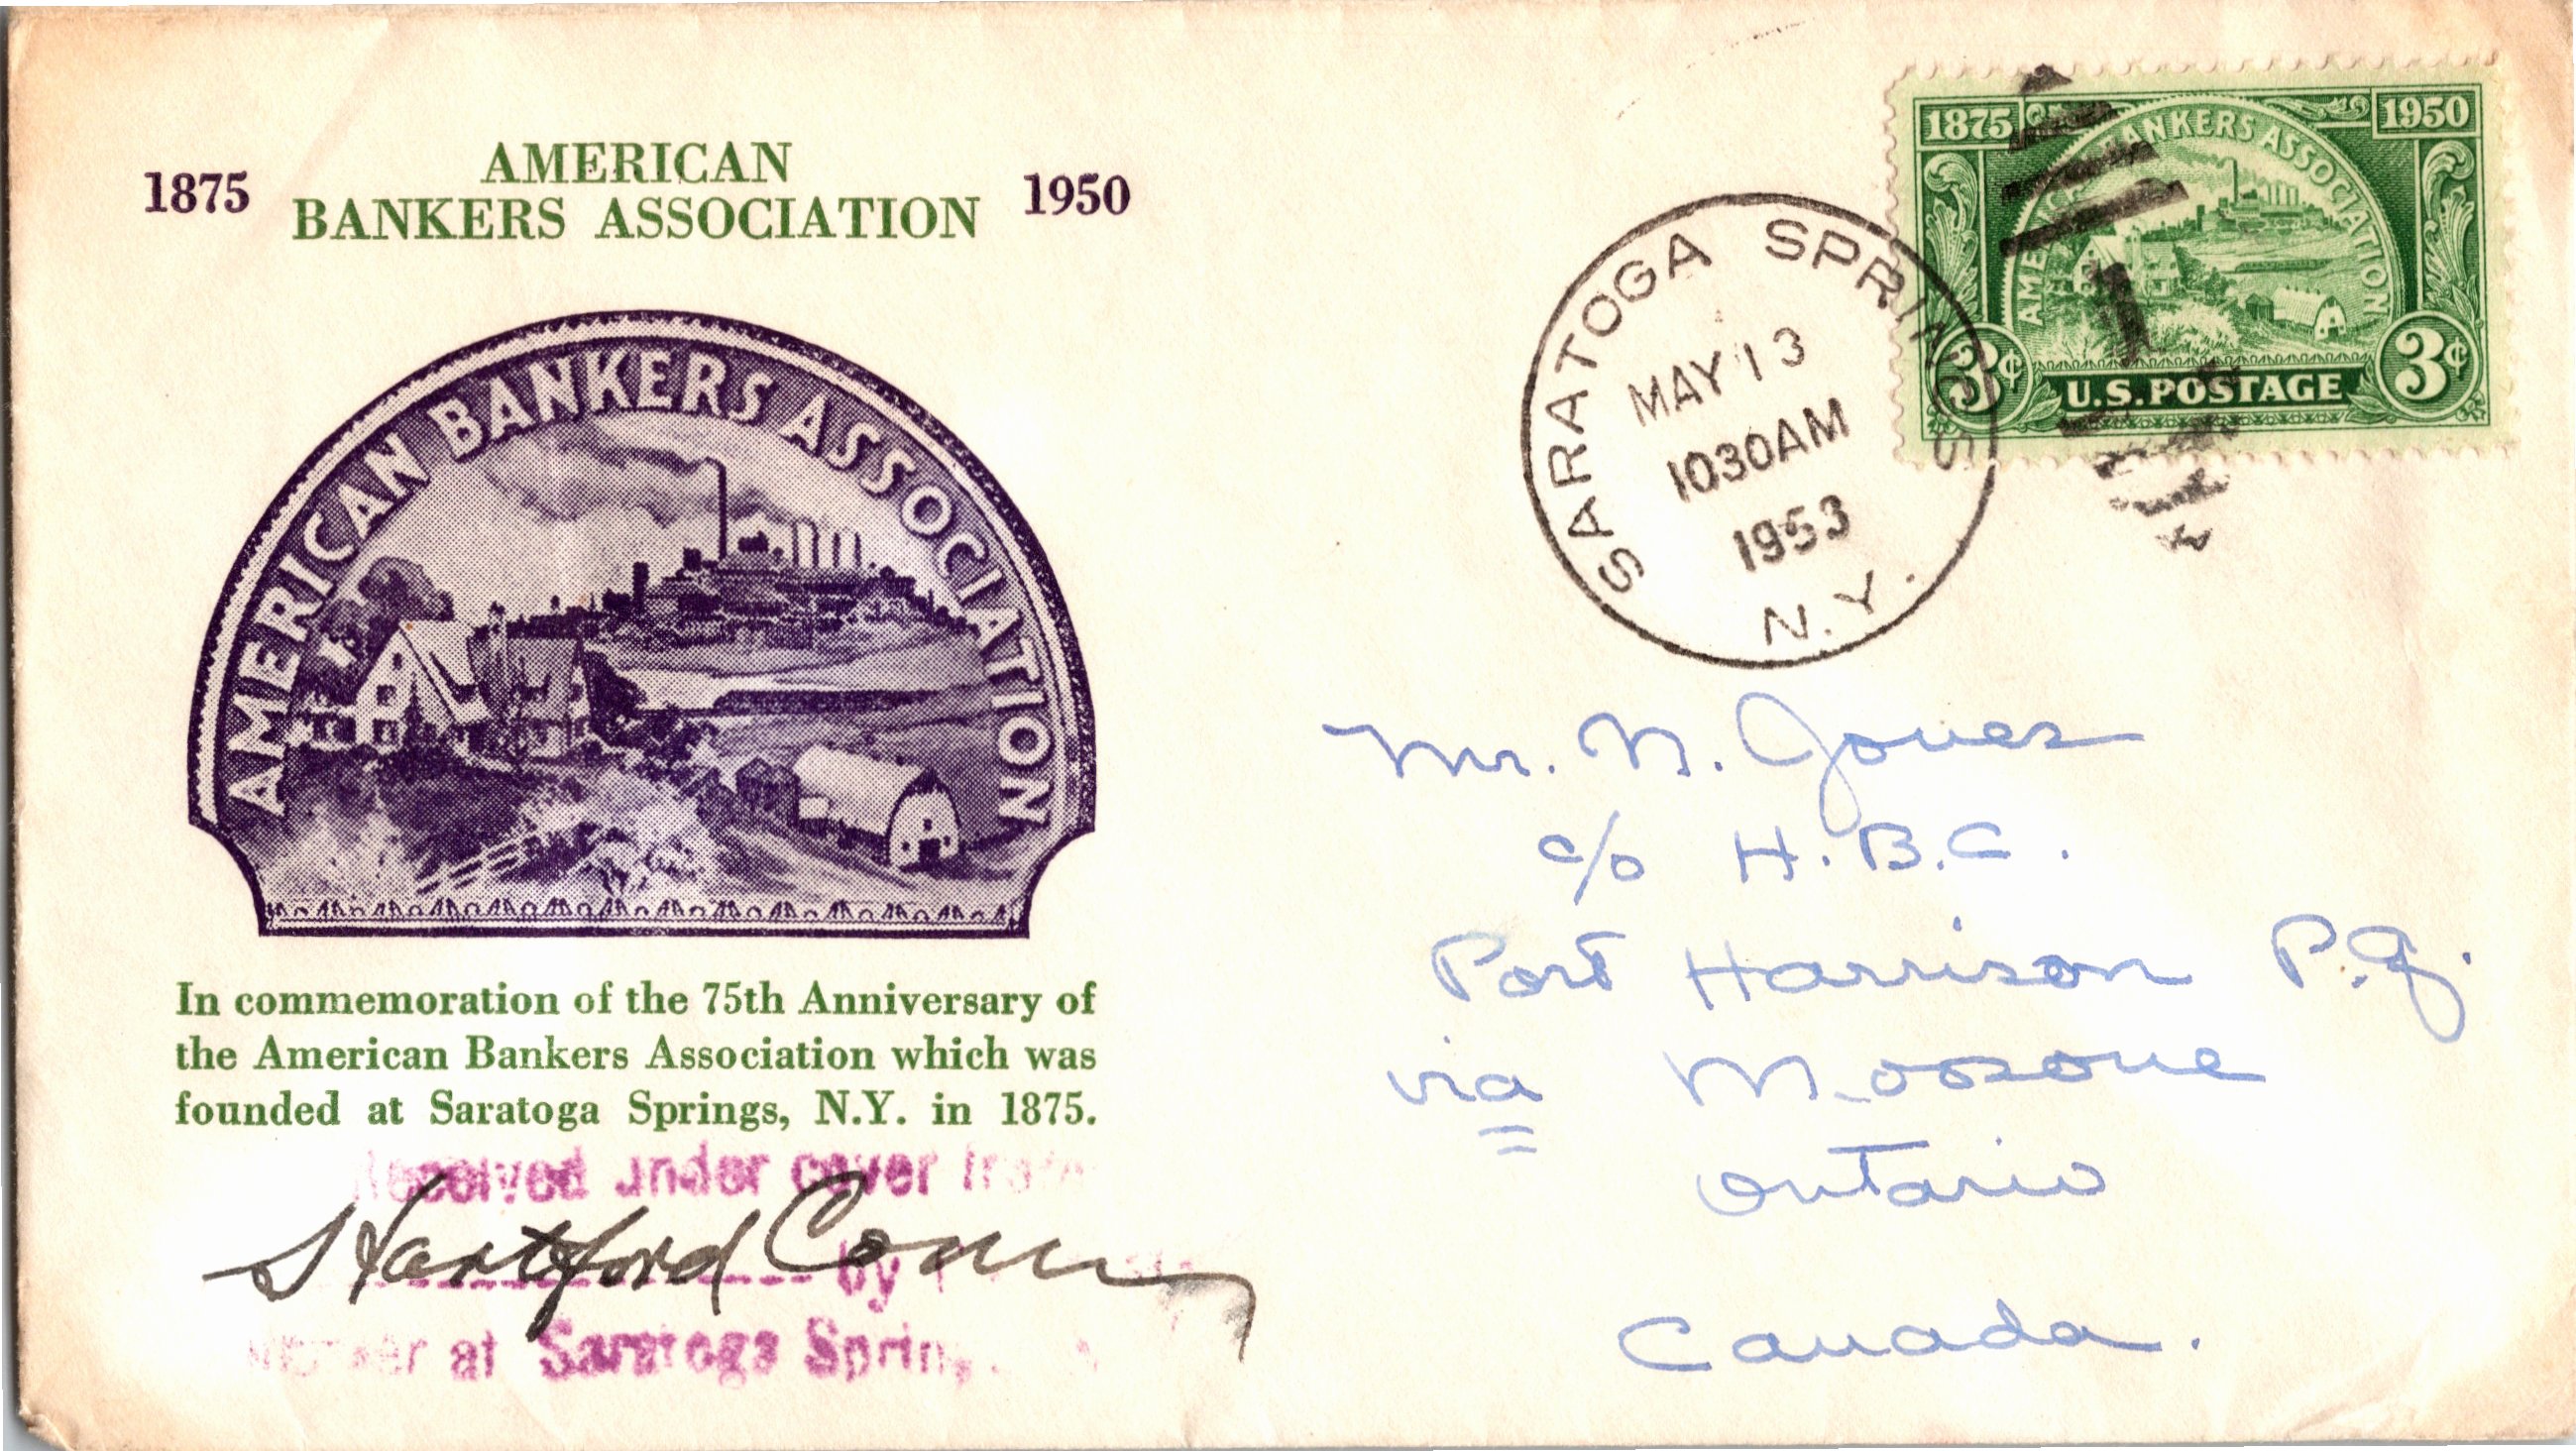 1875 AMERICAN 1950
BANKERS ASSOCIATION
AMERICAN BANKERS ASSOCIATION
In commemoration of the 75th Anniversary of
the American Bankers Association which was
founded at Saratoga Springs, N.Y. in 1875.
Received under cover from
Hartford Conn
by
at Saratoga
1875 1950
AMERICAN BANKERS ASSOCIATION
3¢ U.S.POSTAGE 3¢
SARATOGA SPRINGS
MAY 13
1030AM
1953
N.Y.
Mr. N. Jones
c/o H.B.C.
Port Harrison P.Q.
via Moosone
Ontario
Canada.